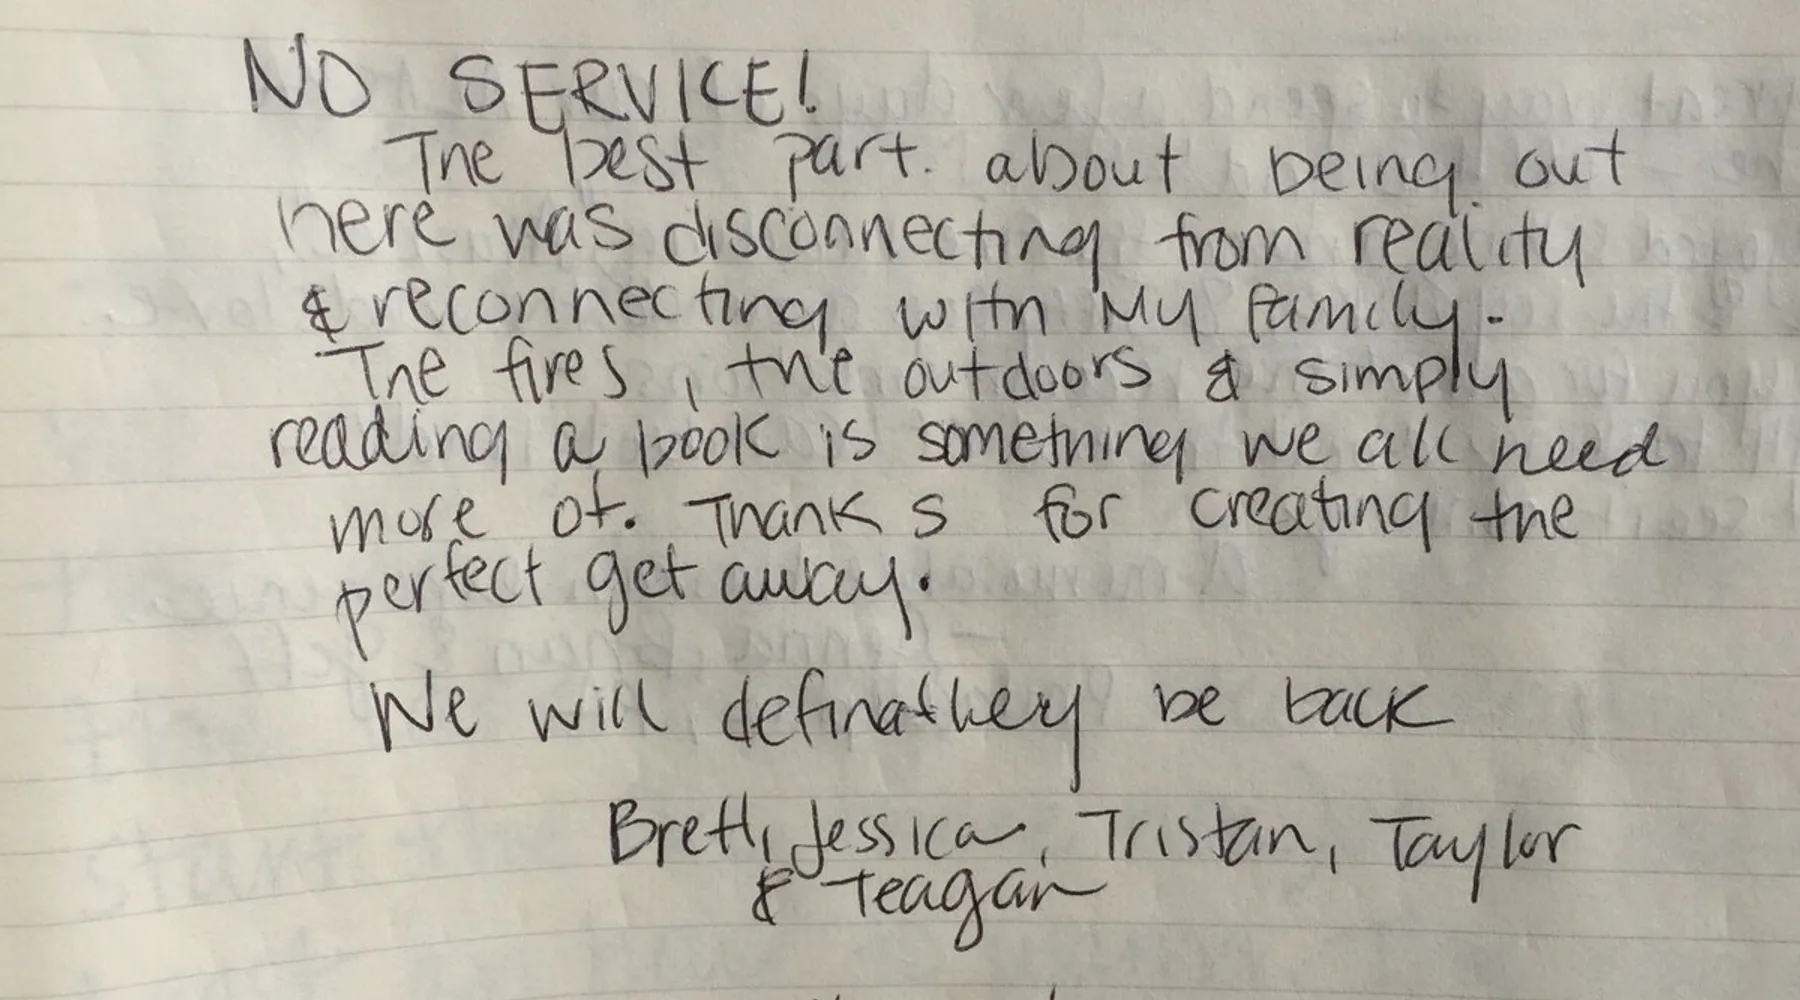 NO SERVICE!
The best part about being out
here was disconnecting from reality
& reconnecting with My family.
The fires, the outdoors & simply
reading a book is something we all need
more of. Thanks for creating the
perfect get away.
We will be back
Brett, Jessica, Tristan, Taylor
& Teagan